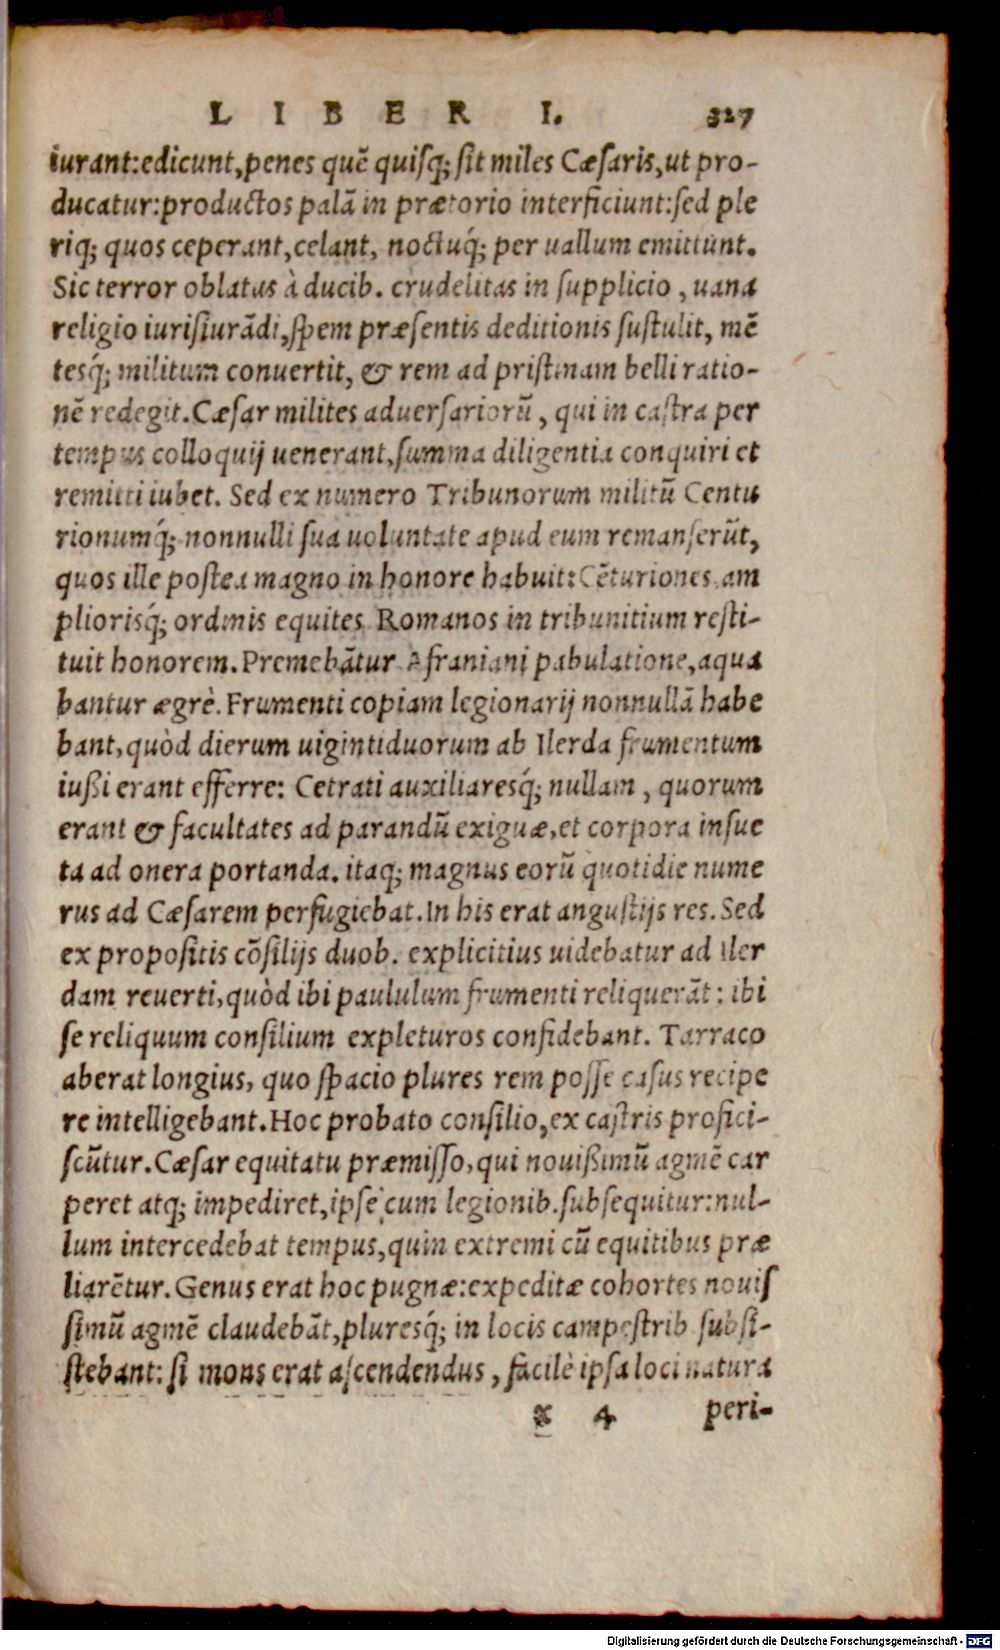 LIBER I. 327
iurant:edicunt,penes quē quisq; sit miles Cæsaris,ut pro-
ducatur:productos palā in prætorio interficiunt:sed ple
riq; quos ceperant,celant, noctuq́; per uallum emittunt.
Sic terror oblatus à ducib. crudelitas in supplicio , uana
religio iurisiurādi,spem præsentis deditionis sustulit, mē
tesq́; militum conuertit, & rem ad pristinam belli ratio-
nē redegit.Cæsar milites aduersariorū , qui in castra per
tempus colloquij uenerant,summa diligentia conquiri et
remitti iubet. Sed ex numero Tribunorum militū Centu
rionumq́; nonnulli sua uoluntate apud eum remanserūt,
quos ille postea magno in honore habuit:Cēturiones am
pliorisq́; ordinis equites Romanos in tribunitium resti-
tuit honorem.Premebātur Afraniani pabulatione,aqua
bantur ægrè.Frumenti copiam legionarij nonnullā habe
bant,quòd dierum uigintiduorum ab Ilerda frumentum
iußi erant efferre: Cetrati auxiliaresq́; nullam , quorum
erant & facultates ad parandū exiguæ,et corpora insue
ta ad onera portanda. itaq; magnus eorū quotidie nume
rus ad Cæsarem perfugiebat.In his erat angustijs res. Sed
ex propositis cōsilijs duob. explicitius uidebatur ad Iler
dam reuerti,quòd ibi paululum frumenti reliquerāt: ibi
se reliquum consilium expleturos confidebant. Tarraco
aberat longius, quo spacio plures rem posse casus recipe
re intelligebant.Hoc probato consilio,ex castris profici-
scūtur.Cæsar equitatu præmisso,qui nouißimū agmē car
peret atq; impediret,ipse cum legionib.subsequitur:nul-
lum intercedebat tempus,quin extremi cū equitibus præ
liarētur.Genus erat hoc pugnæ:expeditæ cohortes nouis
simū agmē claudebāt,pluresq́; in locis campestrib subsi-
stebant: si mons erat ascendendus , facilè ipsa loci natura
x 4 peri-
Digitalisierung gefördert durch die Deutsche Forschungsgemeinschaft - DFG